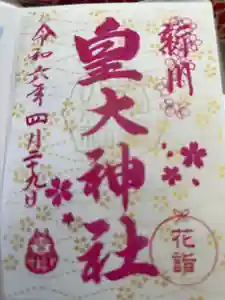 綜門
皇大神社
令和六年四月二十九日
花詣